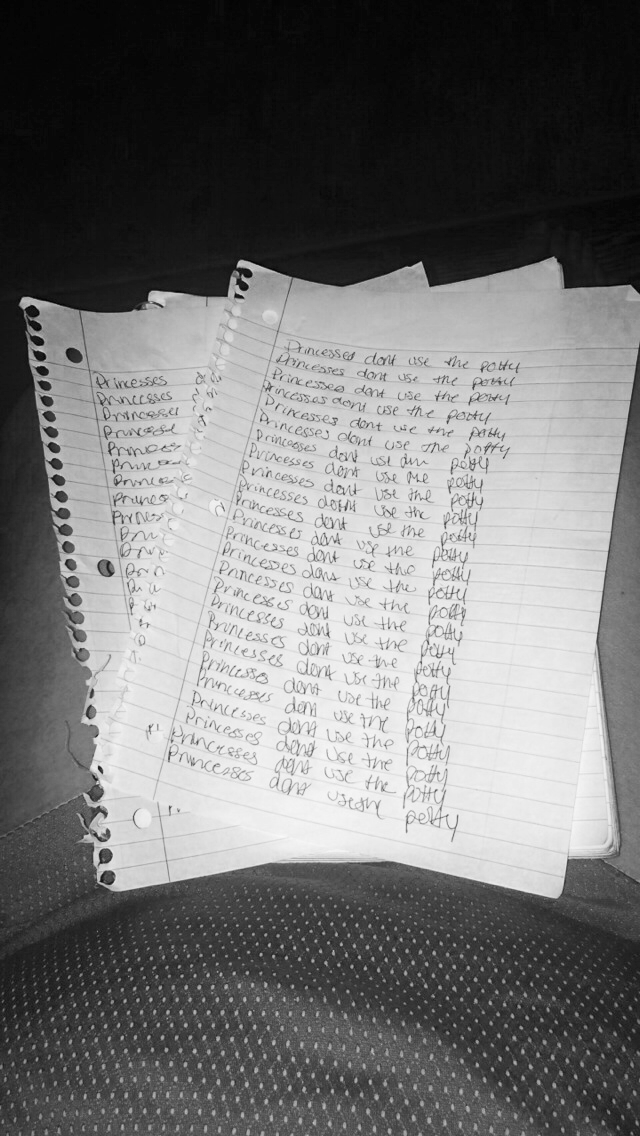 Princesses
Princesses
Princesses
Princesses dont use the potty
Princesses dont use the potty
Princesses dont use the potty
Princesses dont use the potty
Princesses dont use the potty
Princesses dont use the potty
Princesses dont use potty
Princesses dont use the potty
Princesses dont use the potty
Princesses dont use the potty
Princesses dont use the potty
Princesses dont use the potty
Princesses dont use the potty
Princesses dont use the potty
Princesses dont use the potty
Princesses dont use the potty
Princesses dont use the potty
Princesses dont use the potty
Princesses dont use the potty
Princesses dont use the potty
Princesses dont use the potty
Princesses dont use the potty
Princesses dont use the potty
Princesses dont use the potty
Princesses dont use the potty